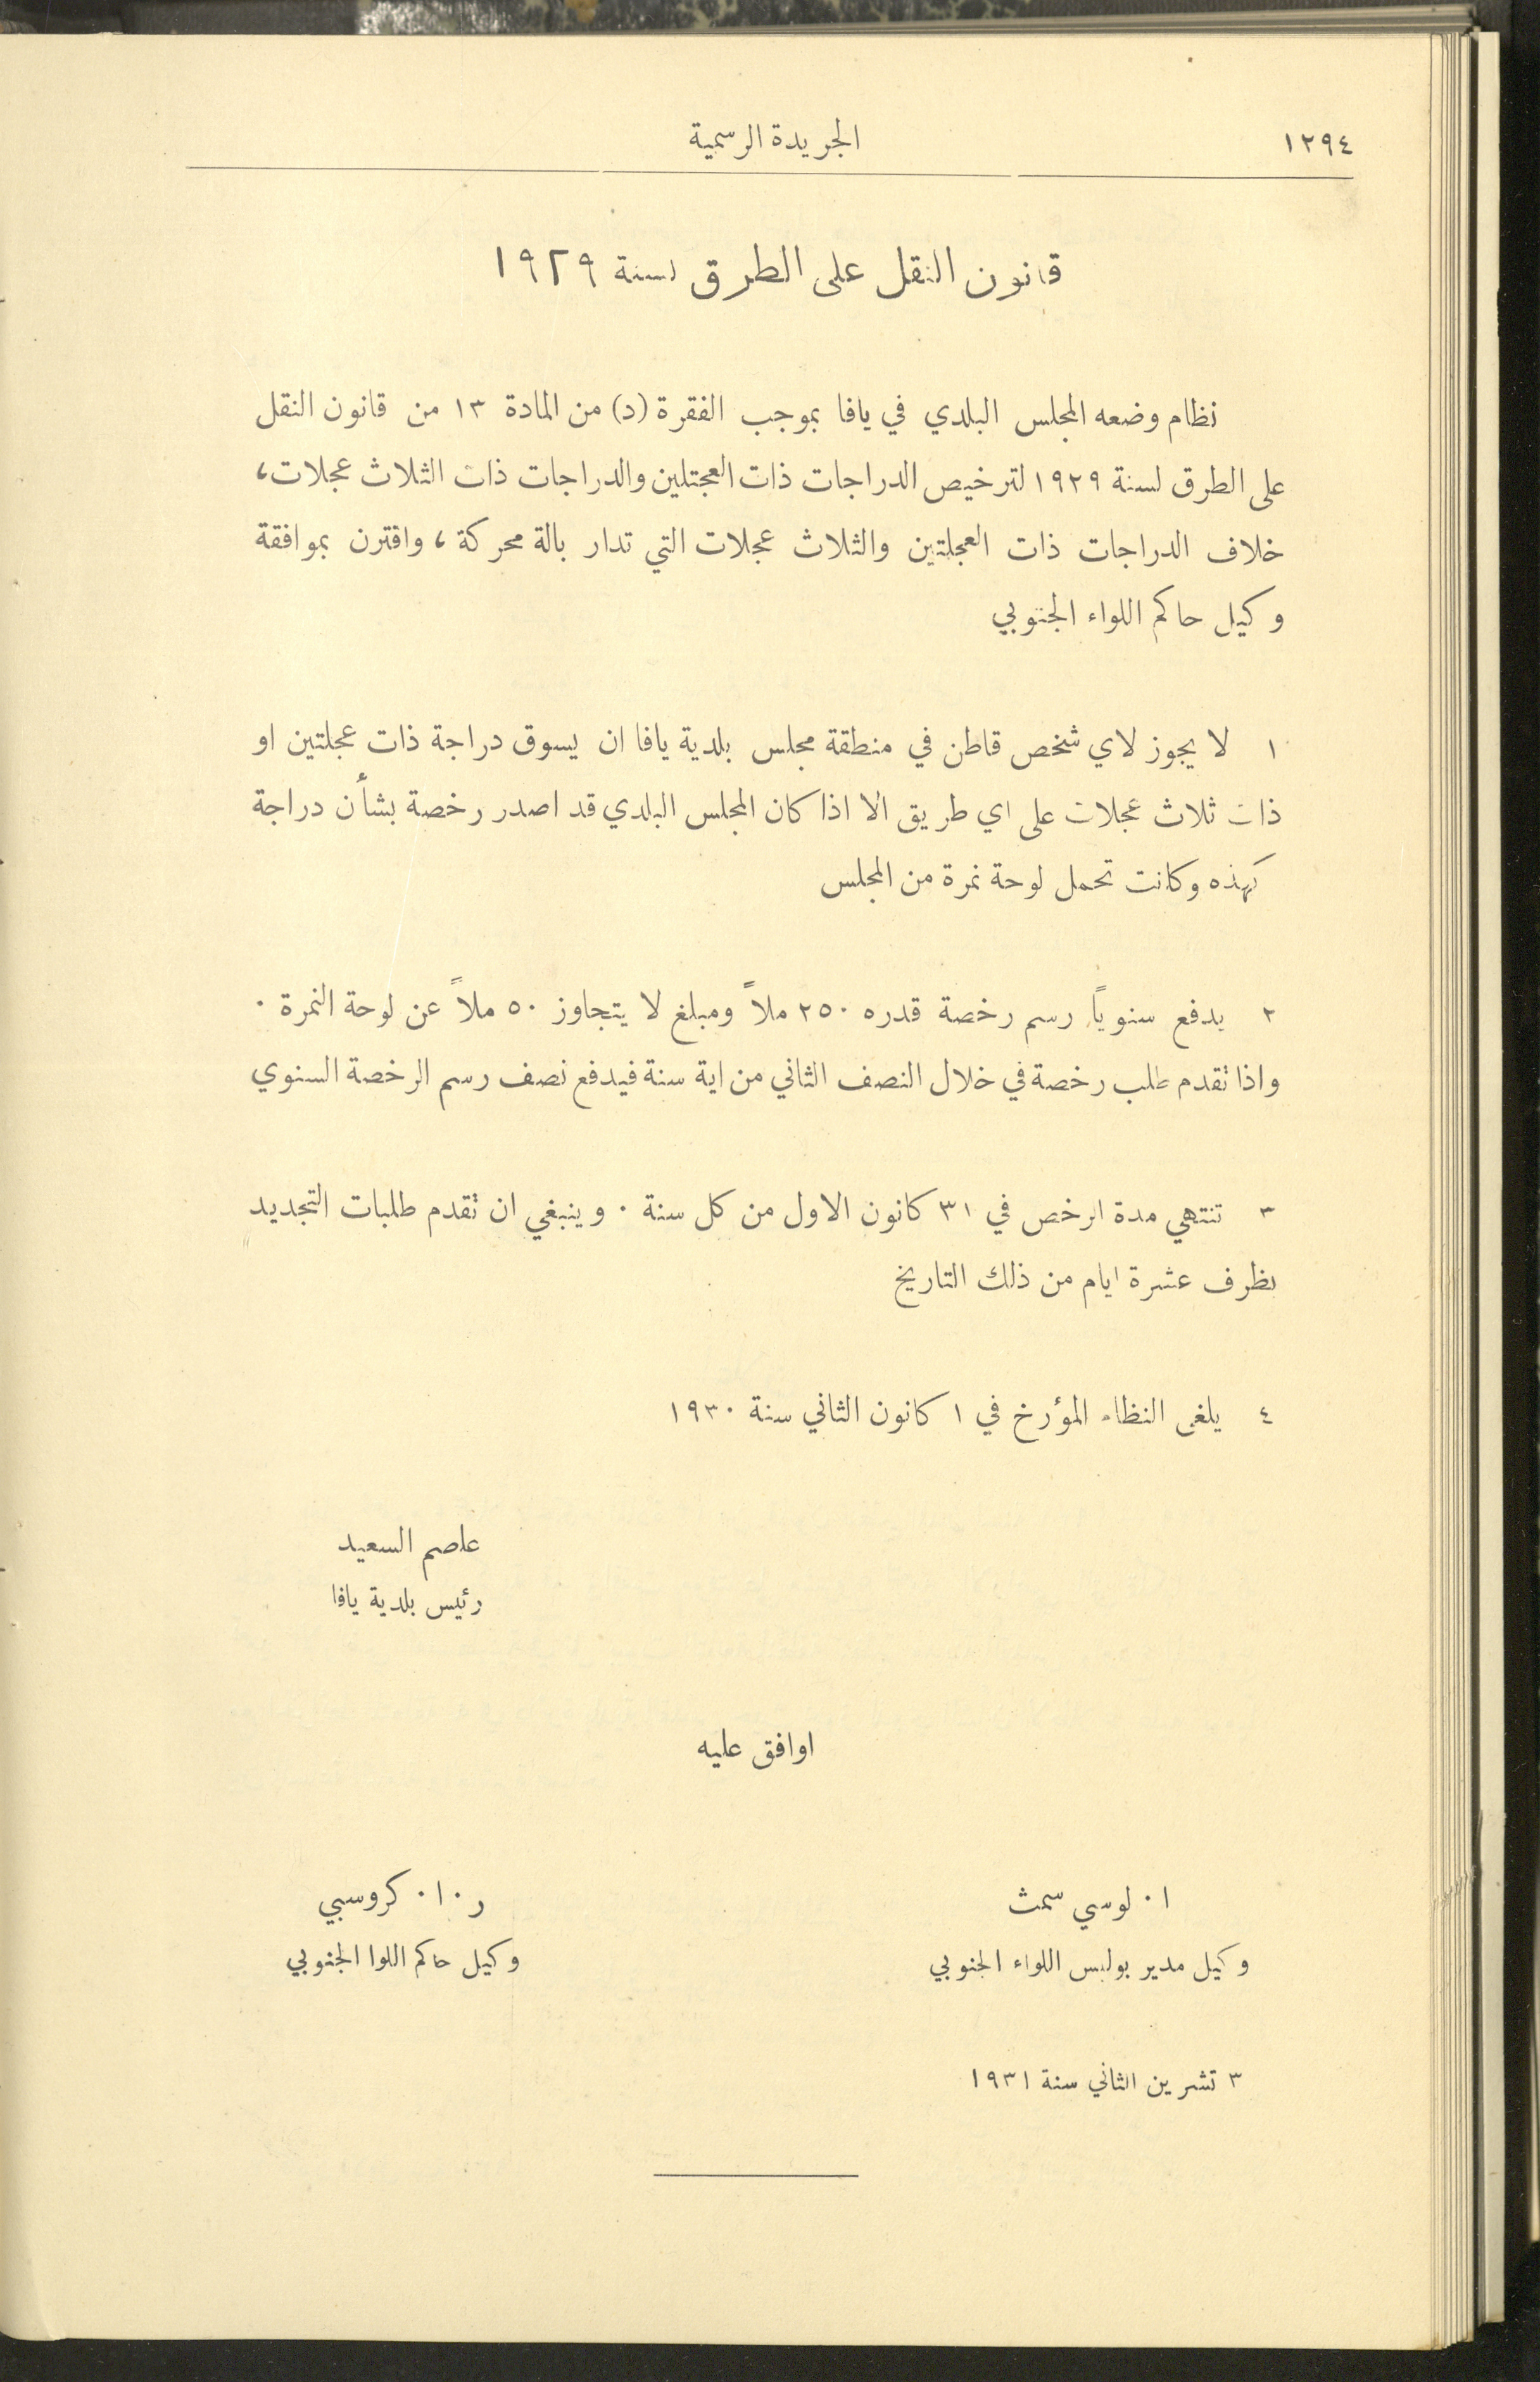 ١٢٩٤
الجريدة الرسمية
قانون النقل على الطرق لسنة ١٩٢٩
نظام وضعه المجلس البلدي في يافا بموجب الفقرة (د) من المادة ١٣ من قانون النقل
على الطرق لسنة ١٩٢٩ لترخيص الدراجات ذات العجتلين والدراجات ذات الثلاث عجلات،
خلاف الدراجات ذات العجلتين والثلاث عجلات التي تدار بالة محركة، واقترن بموافقة
وكيل حاكم اللواء الجنوبي
١ لا يجوز لاي شخص قاطن في منطقة مجلس بلدية يافا ان يسوق دراجة ذات عجلتين او
ذات ثلاث عجلات على اي طريق الا اذا كان المجلس البلدي قد اصدر رخصة بشأن دراجة
كهذه وكانت تحمل لوحة نمرة من المجلس
٢ يدفع سنوياً رسم رخصة قدره ٢٥٠ ملاً ومبلغ لا يتجاوز ٥٠ ملاً عن لوحة النمرة ٠
واذا تقدم طلب رخصة في خلال النصف الثاني من اية سنة فيدفع نصف رسم الرخصة السنوي
٣ تنتهي مدة الرخص في ٣١ كانون الاول من كل سنة ٠ وينبغي ان تقدم طلبات التجديد
بظرف عشرة ايام من ذلك التاريخ
٤ يلغى النظام المؤرخ في ١ كانون الثاني سنة ١٩٣٠
عاصم السعيد
رئيس بلدية يافا
اوافق عليه
ا٠ لوسي سمث
وكيل مدير بوليس اللواء الجنوبي
ر٠ا٠ كروسبي
وكيل حاكم اللوا الجنوبي
٣ تشرين الثاني سنة ١٩٣١